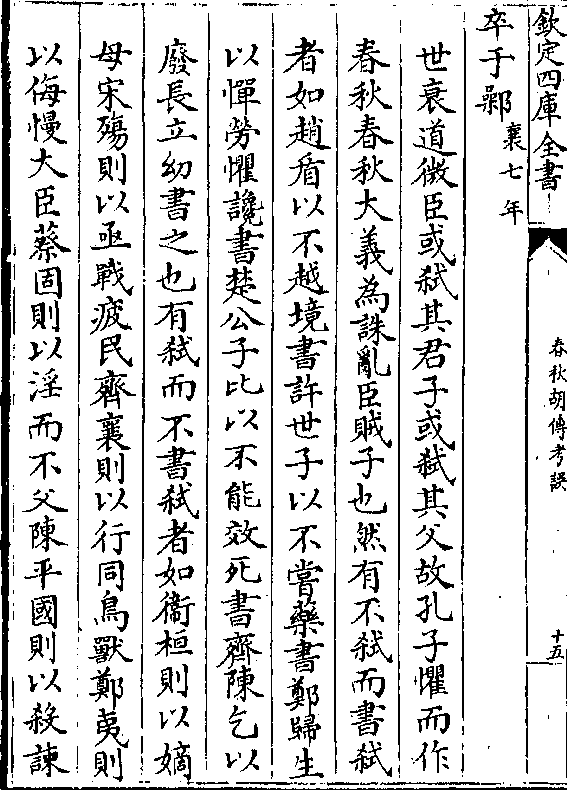 欽定四庫全書
春秋胡傳考誤
十五
卒于鄵襄七年
世衰道微臣或弑其君子或弑其父故孔子懼而作
春秋春秋大義為誅亂臣賊子也然有不弑而書弑
者如趙盾以不越境書許世子以不嘗藥書鄭歸生
以憚勞懼讒書楚公子比以不能效死書齊陳乞以
廢長立幼書之也有弑而不書弑者如衞桓則以嫡
母宋殤則以亟戰疲民齊襄則以行同鳥獸鄭夷則
以侮慢大臣蔡固則以淫而不父陳平國則以殺諫